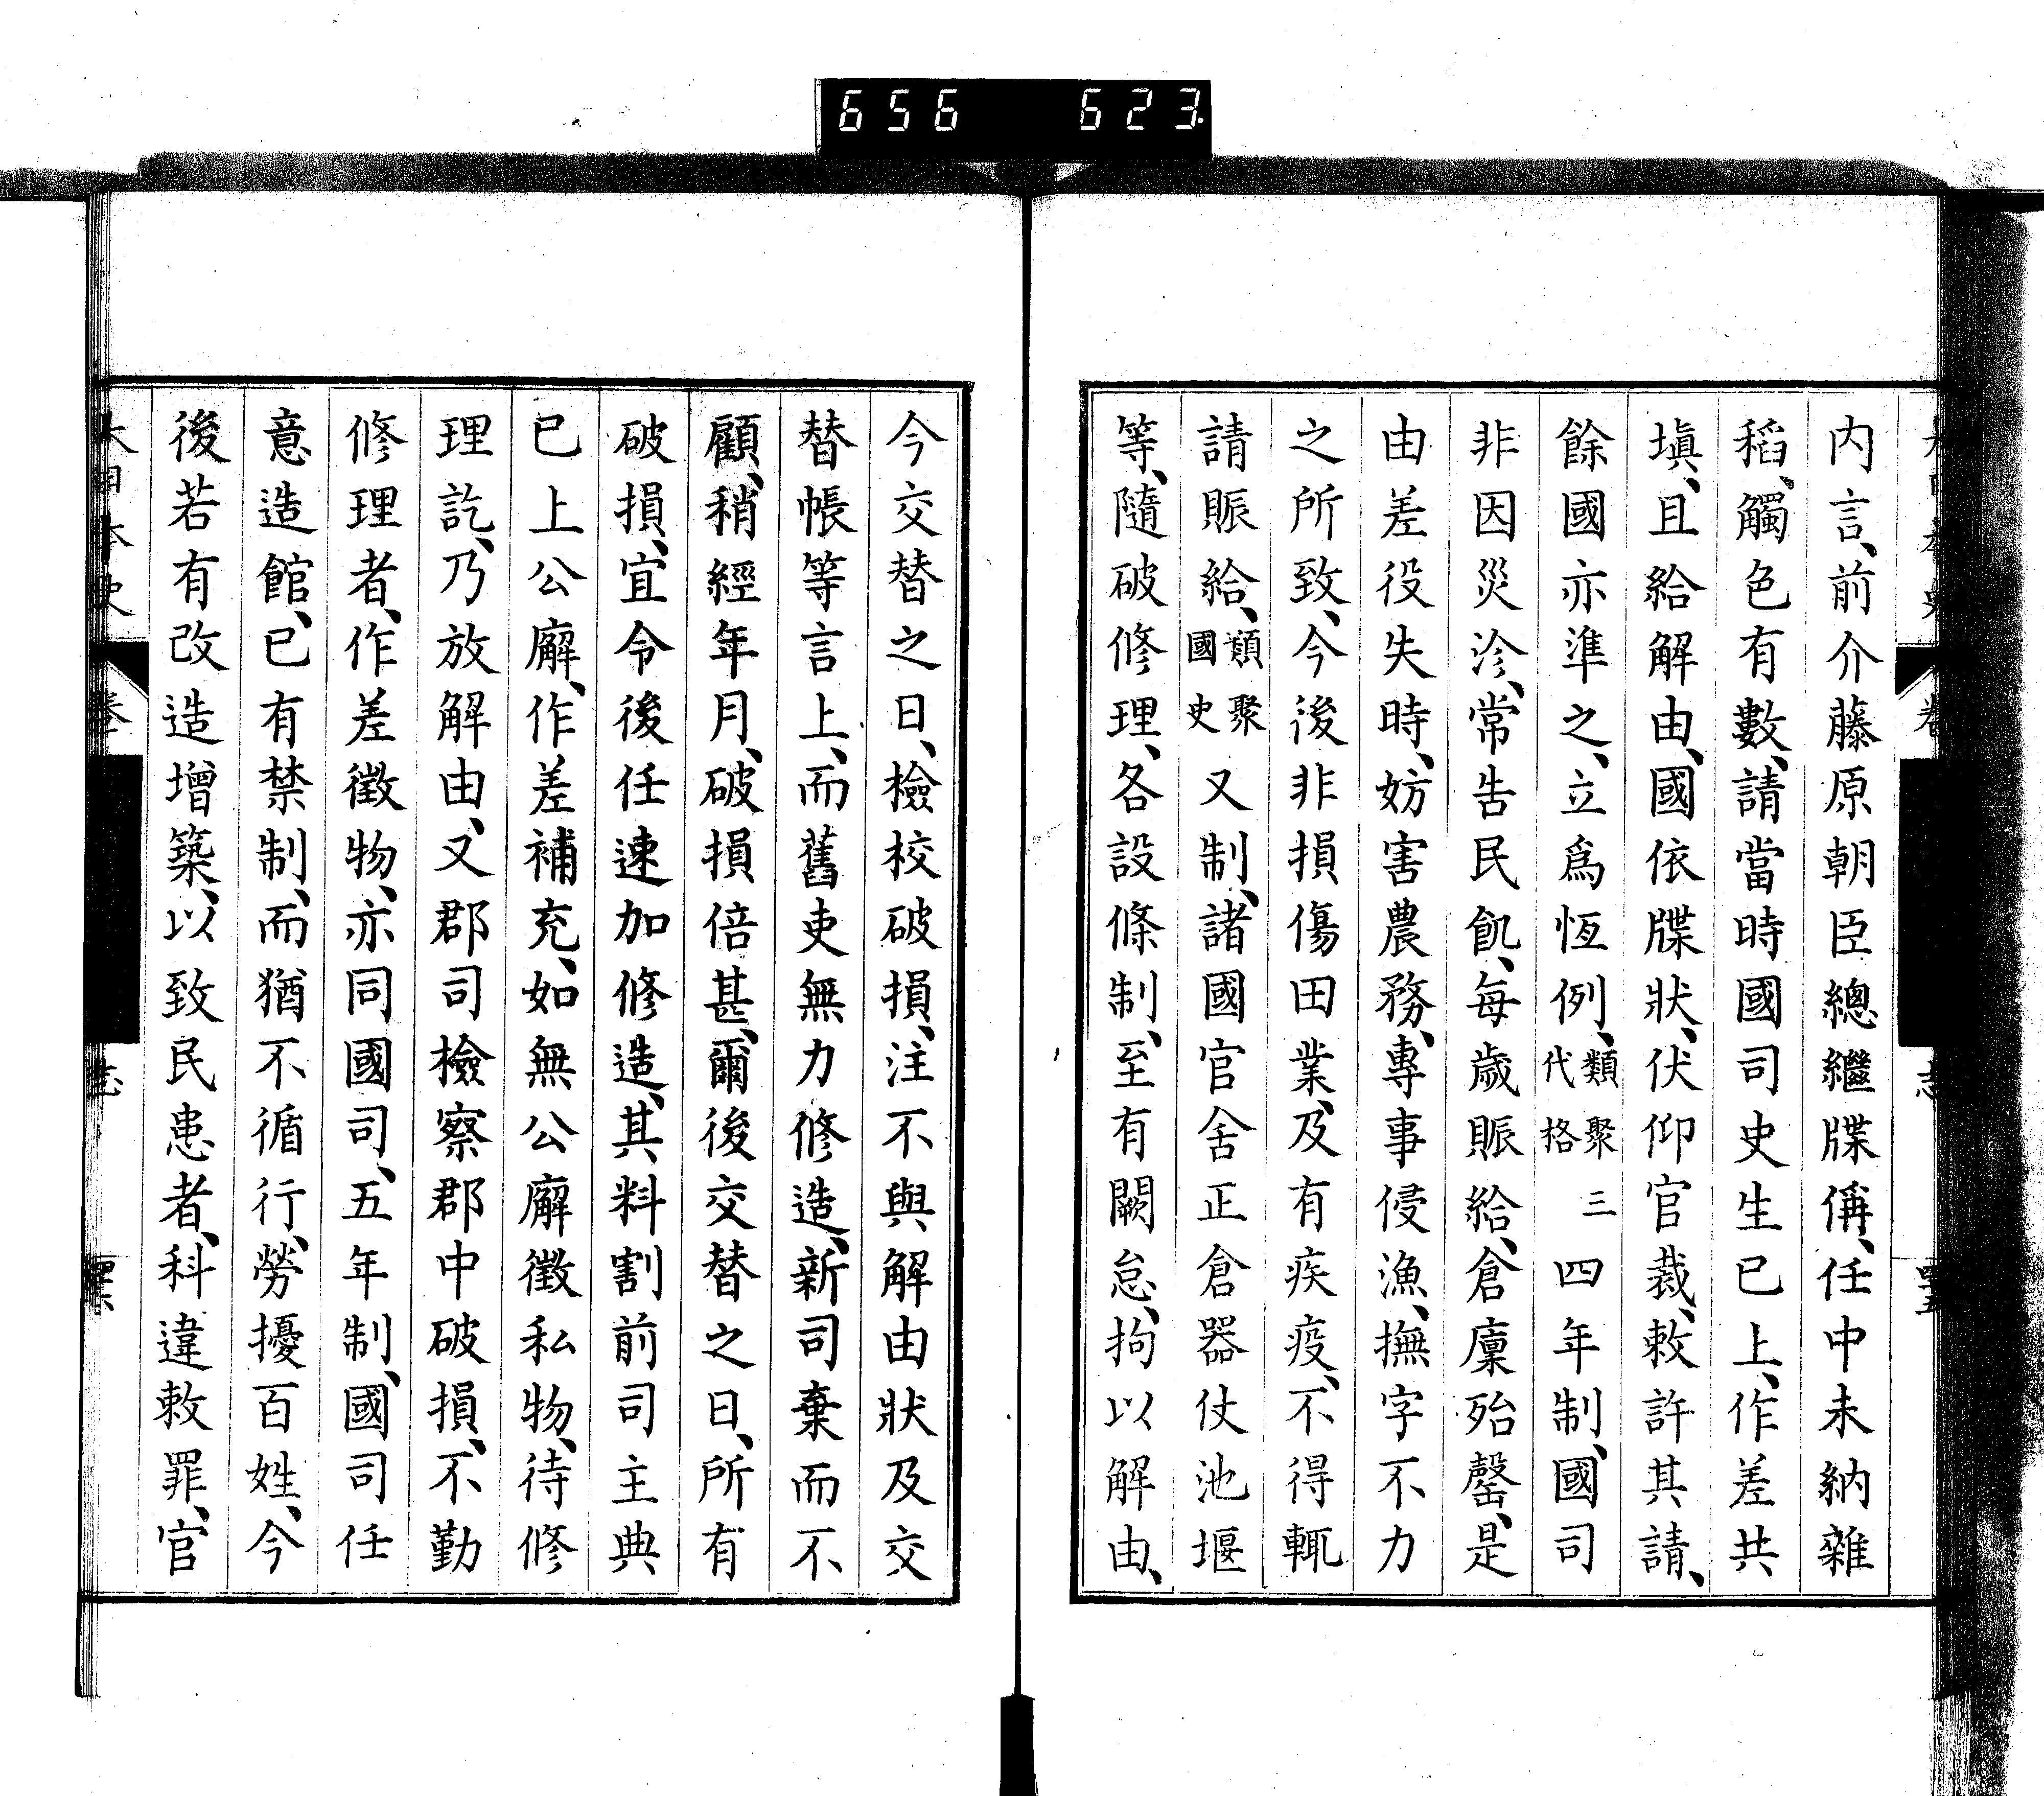 656 623
内言、前介藤原朝臣總繼牒偁、任中未納雜
稻、觸色有數、請當時國司史生已上、作差共
塡、且給解由、國依牒狀、伏仰官裁、敕許其請、
餘國亦準之、立爲恆例、類聚代格三四年制、國司
非因災沴、常告民飢、每歲賑給、倉廩殆罄、是
由差役失時、妨害農務、專事侵漁、撫字不力
之所致、今後非損傷田業、及有疾疫、不得輒
請賑給、類聚國史又制、諸國官舍正倉器仗池堰
等、隨破修理、各設條制、至有闕怠、拘以解由、
今交替之日、檢校破損、注不與解由狀及交
替帳等言上、而舊吏無力修造、新司棄而不
顧、稍經年月、破損倍甚、爾後交替之日、所有
破損、宜令後任速加修造、其料割前司主典
已上公廨、作差補充、如無公廨徵私物、待修
理訖、乃放解由、又郡司檢察郡中破損、不勤
修理者、作差徵物、亦同國司、五年制、國司任
意造館、已有禁制、而猶不循行、勞擾百姓、今
後若有改造增築、以致民患者、科違敕罪、官
大日本史